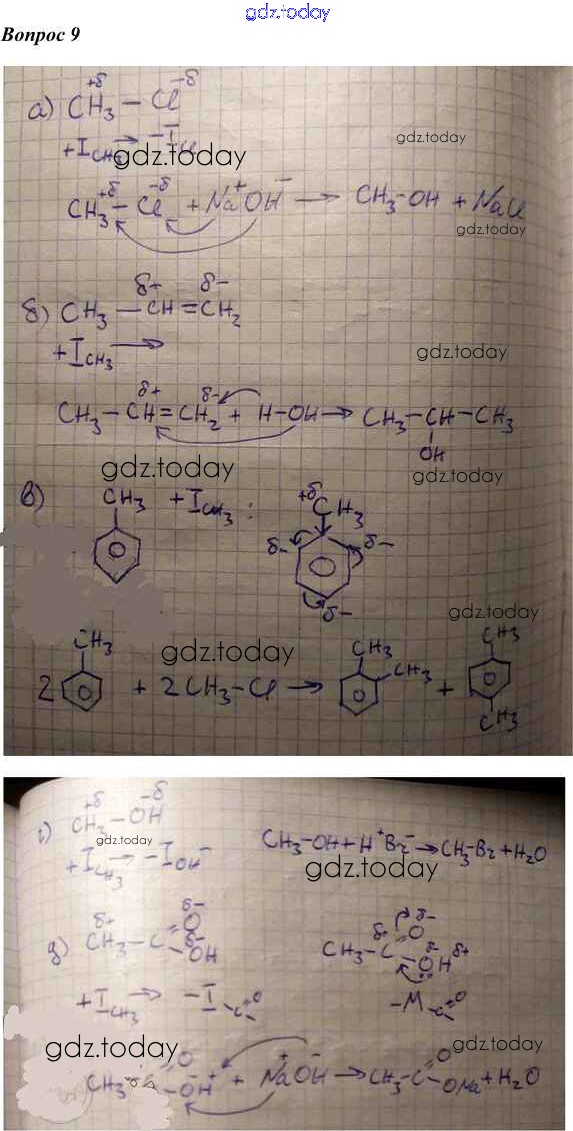 gdz.today
Вопрос 9
а) CH₃ — Cl
+δ −δ
+I CH₃ → −I Cl
gdz.today
gdz.today
CH₃ — Cl + Na⁺OH⁻ → CH₃–OH + NaCl
+δ −δ
gdz.today
б) CH₃ — CH = CH₂
δ+ δ−
+I CH₃ →
gdz.today
CH₃ — CH = CH₂ + H–OH → CH₃–CH–CH₃
δ+ δ−
OH
gdz.today
gdz.today
в) CH₃ +I CH₃ : +δ CH₃
δ− δ−
δ−
gdz.today
gdz.today
CH₃ CH₃ CH₃
2 + 2CH₃–Cl → CH₃ +
CH₃
+δ −δ
г) CH₃ — OH
gdz.today
+I CH₃ → −I OH⁻
CH₃–OH + H⁺Br⁻ → CH₃–Br + H₂O
gdz.today
д) CH₃ — C O OH
δ+ δ− δ−
CH₃ — C O OH
δ+ δ− δ− δ+
+I CH₃ → −I C=O
−M C=O
gdz.today
gdz.today
CH₃ O OH⁺ + Na⁺OH⁻ → CH₃–C O ONa + H₂O